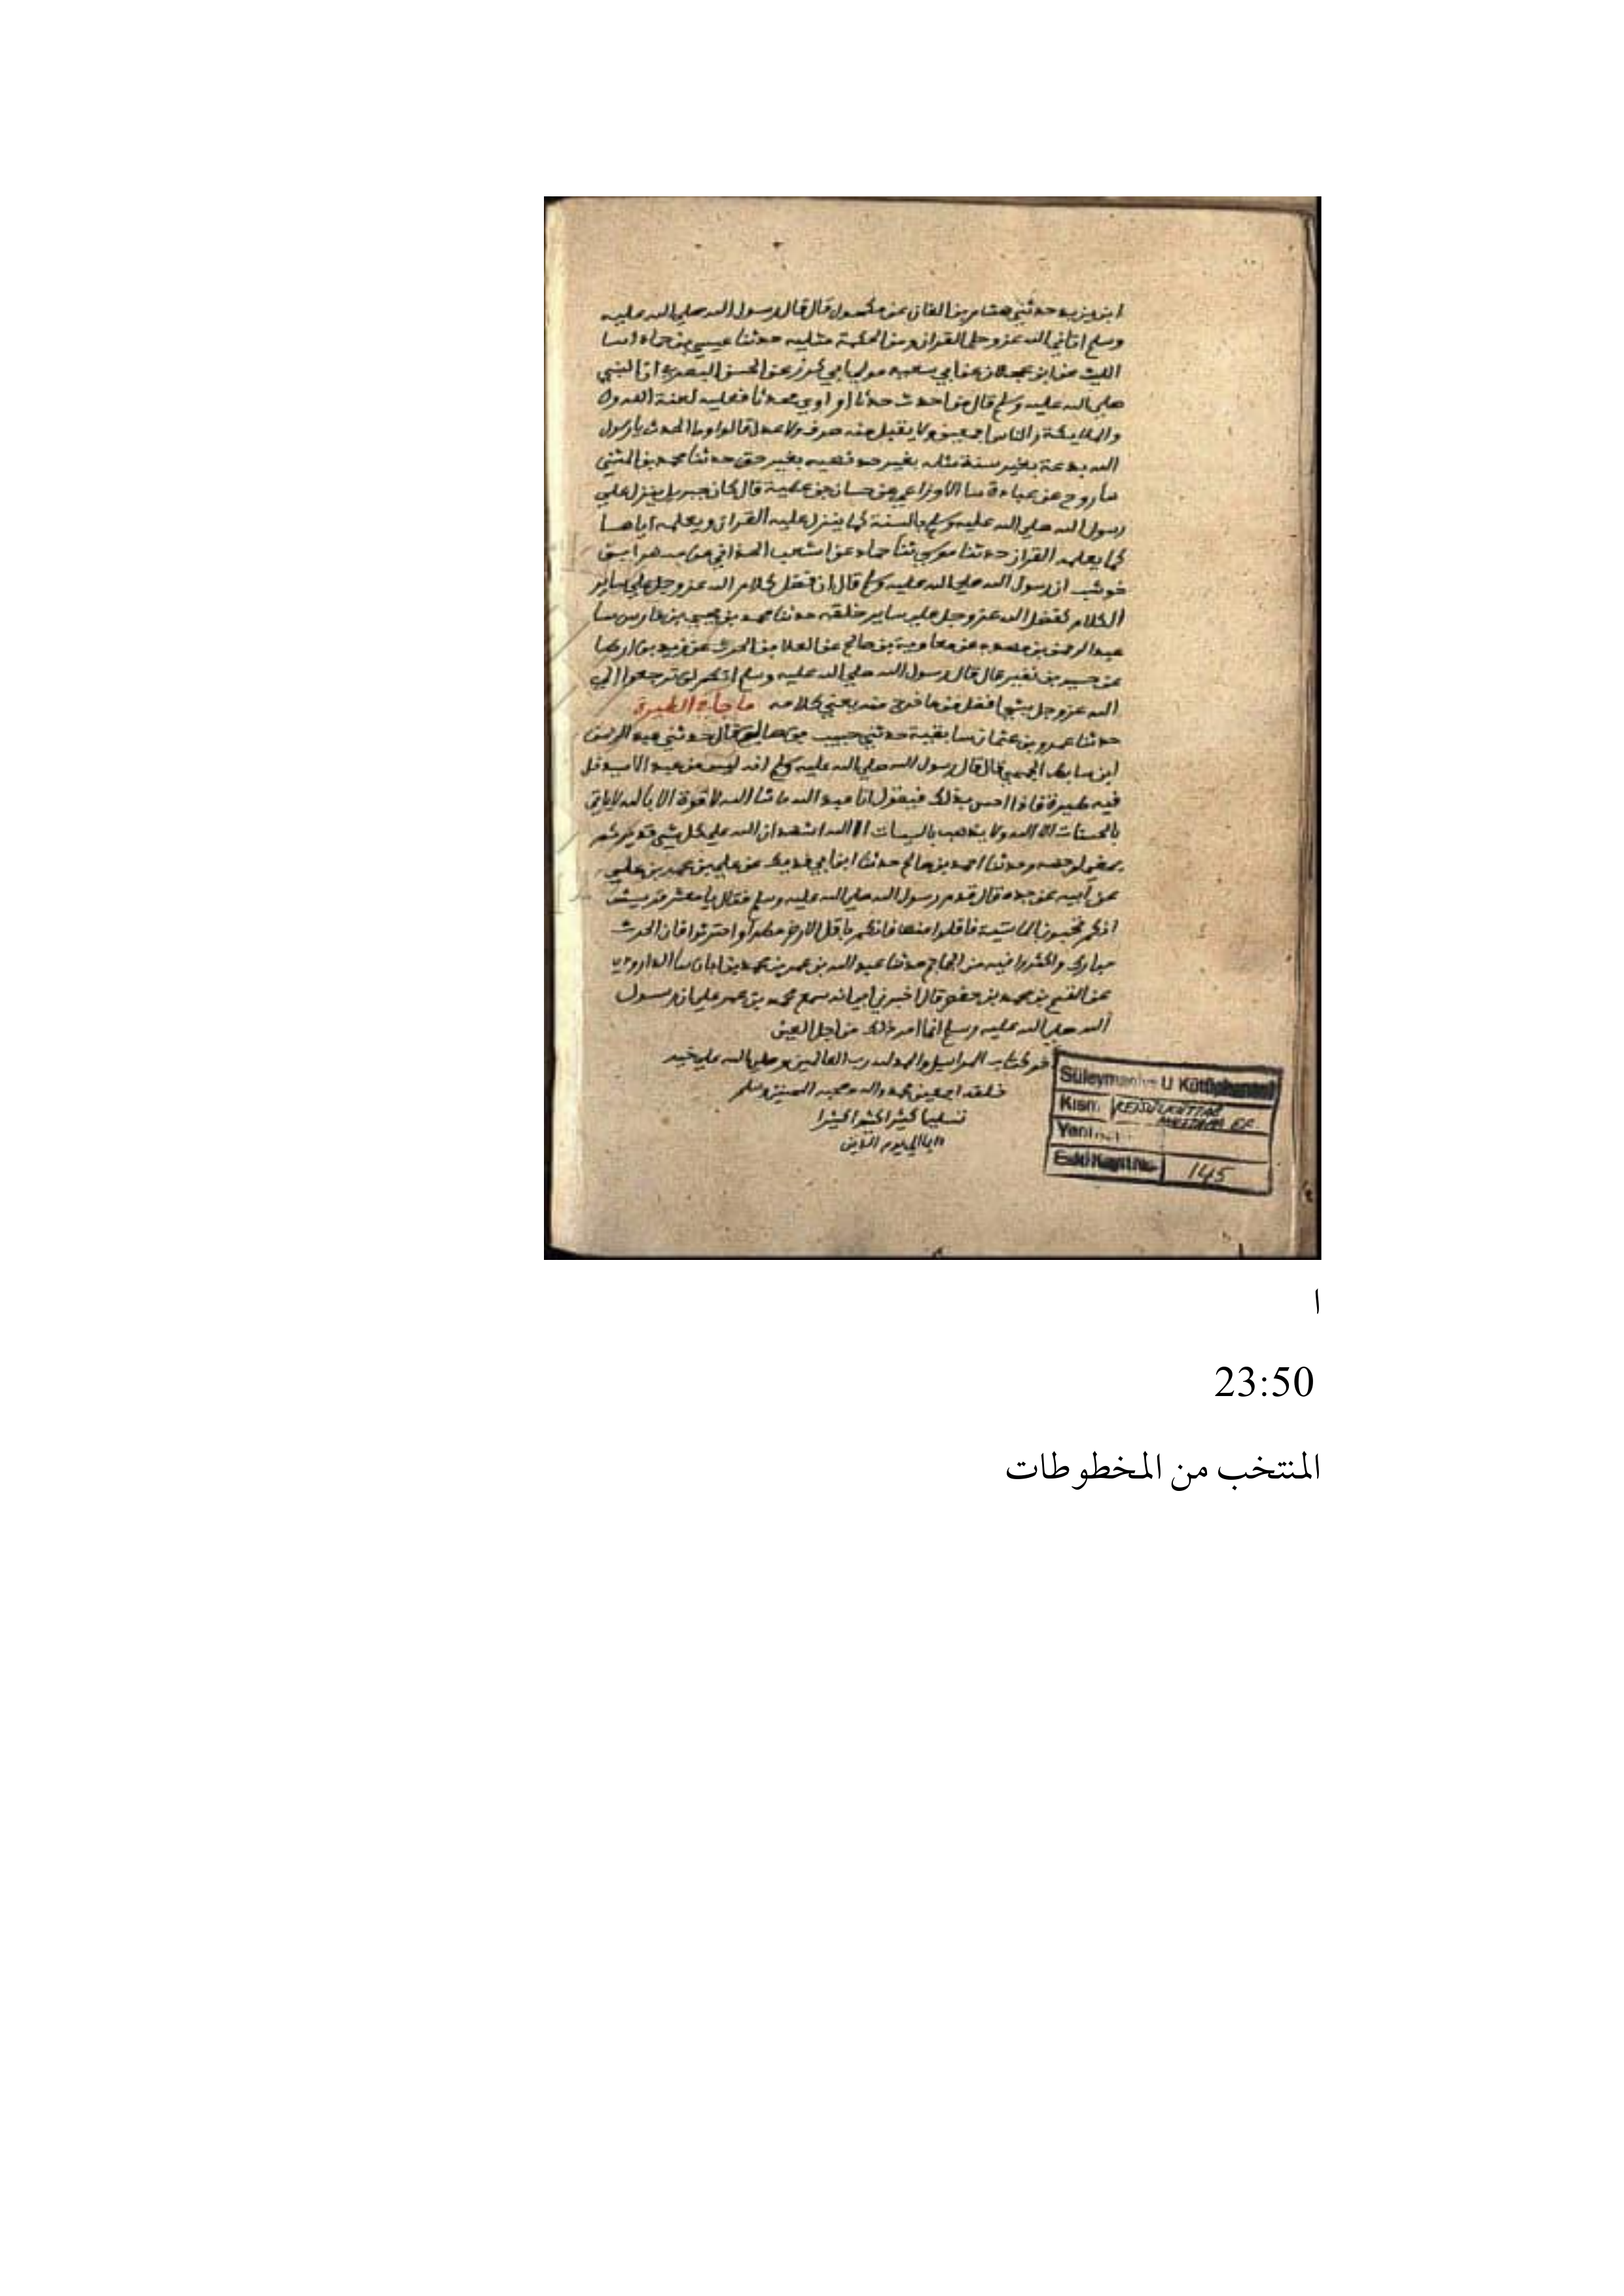 ابن يزيد حدثني هشام بن الغاز عن مكحول قال قال رسول الله صلى الله عليه
وسلم اتاني الله عز وجل القران ومن الحكمة مثليه حدثنا عيسى بن حماد انبا
الليث عن ابن عجلان عن ابي سعيد مولى ابي كرز عن الحسن البصري ان النبي
صلى الله عليه وسلم قال من احدث حدثا او اوى محدثا فعليه لعنة الله
والملايكة والناس اجمعين ولا يقبل منه صرف ولا عدل قالوا وما الحدث يا رسول
الله بدعة بغير سنة مثلة بغير حد نهبه بغير حق حدثنا محمد بن المثنى
روح عن عبادة الاوزاعي عن حسان بن عطية قال كان جبريل ينزل على
رسول الله صلى الله عليه وسلم بالسنة كما ينزل عليه القران ويعلمه اياها
كما يعلمه القران حدثنا موسى ثنا حماد عن اشعب الحداني عن شهر ابن
حوشب ان رسول الله صلى الله عليه وسلم قال ان فضل كلام الله عز وجل على ساير
الكلام كفضل الله عز وجل على ساير خلقه حدثنا محمد بن يحيى بن فارس
عبد الرحمن بن عن معاوية بن صالح عن العلا بن الحرث عن زيد بن ارطا
عن جبير بن نفير قال قال رسول الله صلى الله عليه وسلم انكم لن ترجعوا الى
الله عز وجل بشي افضل من ما خرج منه يعني كلامه ما جاء في الطيرة
حدثنا عمرو بن عثمان بقية حدثني حبيب بن صالح قال حدثني عبد الرحمن
ابن سابط الجمحي قال قال رسول الله صلى الله عليه وسلم انه ليس من عبد الا سيدخل
فيه طيرة فاذا احس بذلك فيقول انا عبد الله ما شا الله لا قوة الا بالله لا ياتي
بالحسنات الا الله ولا يذهب بالسيات الا الله اشهد ان الله على كل شي قدير ثم
يمضي لوجهه وحدثنا احمد بن صالح حدثنا ابن ابي فديك عن علي بن عمر بن علي
عن ابيه عن جده قال قدم رسول الله صلى الله عليه وسلم فقال يا معشر قريش
انكم تحبون الماشية فاقلوا منها فانكم باقل الارض مطرا واحترثوا فان الحرث
مبارك واكثروا فيه من الجماجم حدثنا عبد الله بن عمر بن محمد بن ابان
عن القسم بن محمد بن حفص قال اخبرني ابي انه سمع محمد بن عمر علي ان رسول
الله صلى الله عليه وسلم انما امر ذلك من اجل العين
اخر كتاب المراسيل والحمد لله رب العالمين وصلى الله على خير
خلقه اجمعين محمد واله وصحبه وسلم
تسليما كثيرا
الى يوم الدين
Süleymaniye U Kütüphanesi
Kısmı REİSÜLKÜTTAB MUSTAFA EF
Yeni
Eski Kayıt No 145
ا
23:50
المنتخب من المخطوطات